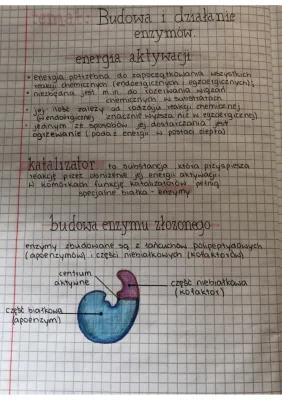 temat: Budowa i działanie
enzymów.
energia aktywacji
• energia potrzebna do zapoczątkowania wszystkich
reakcji chemicznych (endoergicznych i egzoergicznych);
• niezbędna jest m.in. do rozerwania wiązań
chemicznych w substratach
• jej ilość zależy od rodzaju reakcji chemicznej
(w endoergicznej znacznie wyższa niż w egzoergicznej)
• jednym ze sposobów jej dostarczania jest
ogrzewanie (podaż energii w postaci ciepła)
katalizator to substancja która przyspiesza
reakcję przez obniżenie jej energii aktywacji.
W komórkach funkcję katalizatorów pełnią
specjalne białka - enzymy
budowa enzymu złożonego
enzymy zbudowane są z łańcuchów polipeptydowych
(apoenzymów) i części niebiałkowych (kofaktorów)
centrum
aktywne
część niebiałkowa
(kofaktor)
część białkowa
(apoenzym)